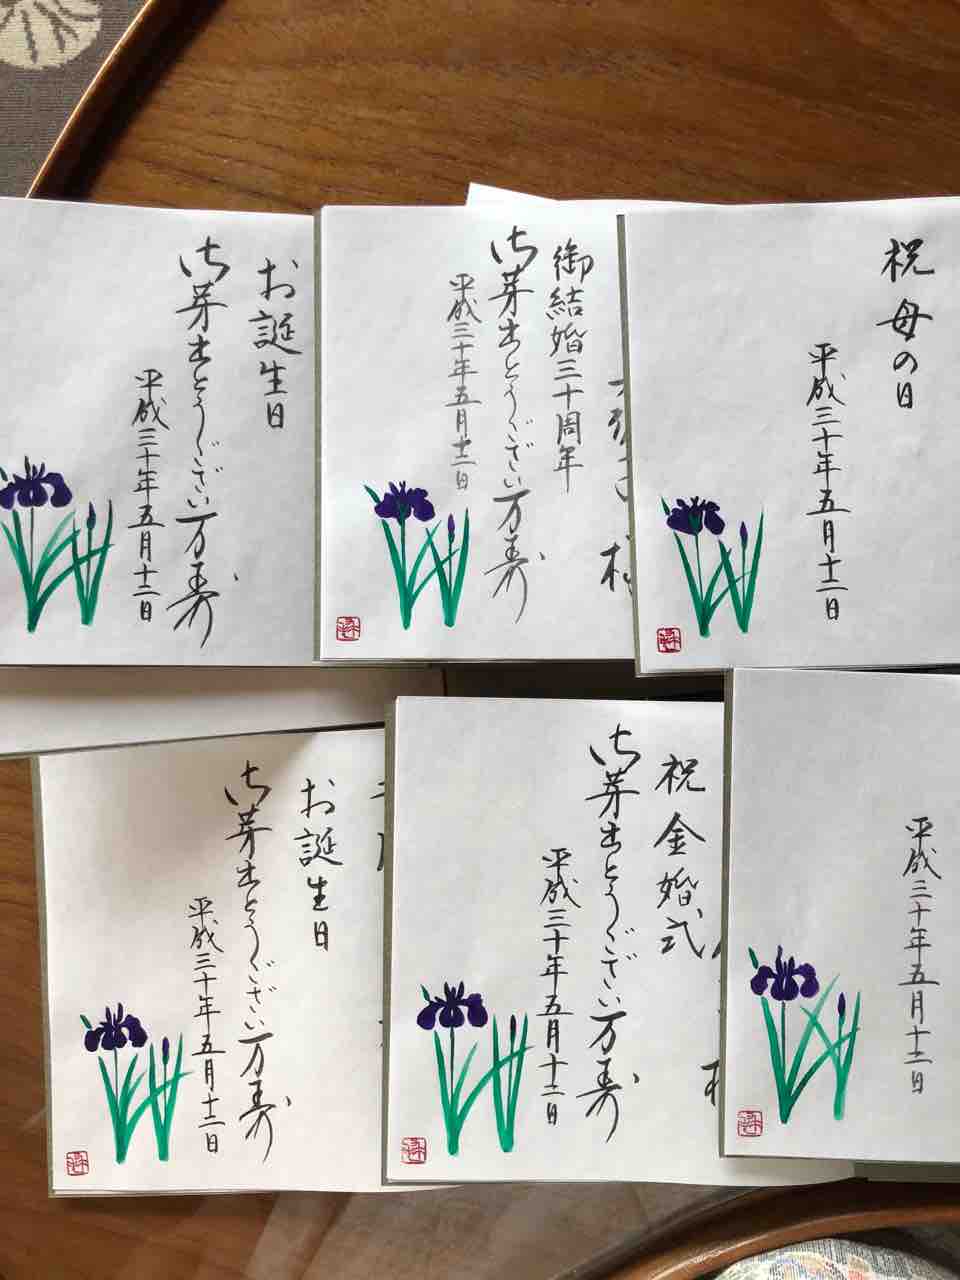 祝母の日
平成三十年五月十二日
御結婚三十周年
御芽出とうござい万寿
平成三十年五月十二日
お誕生日
御芽出とうござい万寿
平成三十年五月十二日
平成三十年五月十二日
祝金婚式
御芽出とうござい万寿
平成三十年五月十二日
お誕生日
御芽出とうござい万寿
平成三十年五月十二日